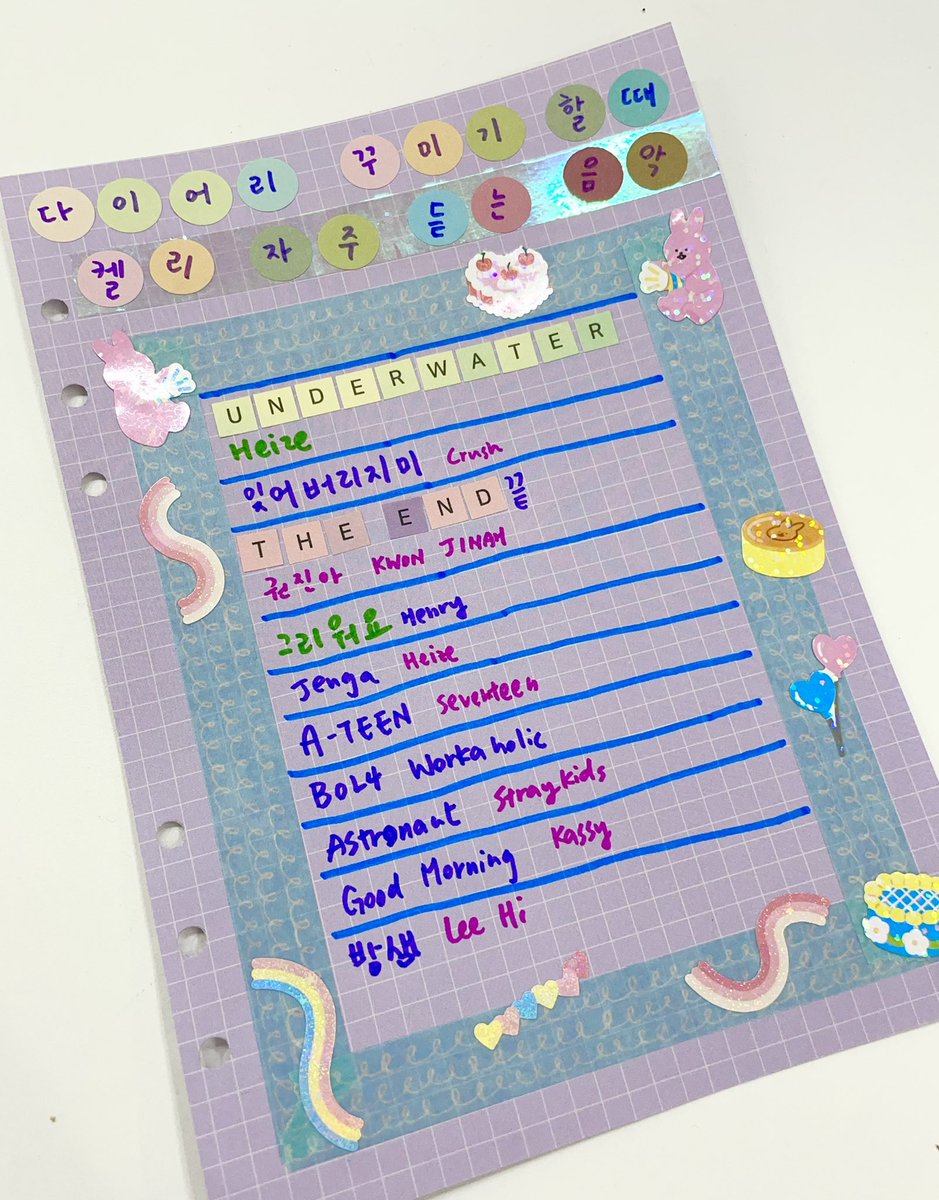 다이어리 꾸미기 할 때
켈리 자주 듣는 음악
UNDERWATER
Heize
잊어버리지마 Crush
THE END 끝
권진아 KWON JINAH
그리워요 Henry
Jenga Heize
A-TEEN Seventeen
BOL4 Workaholic
Astronaut Straykids
Good Morning Kassy
밤샘 Lee Hi